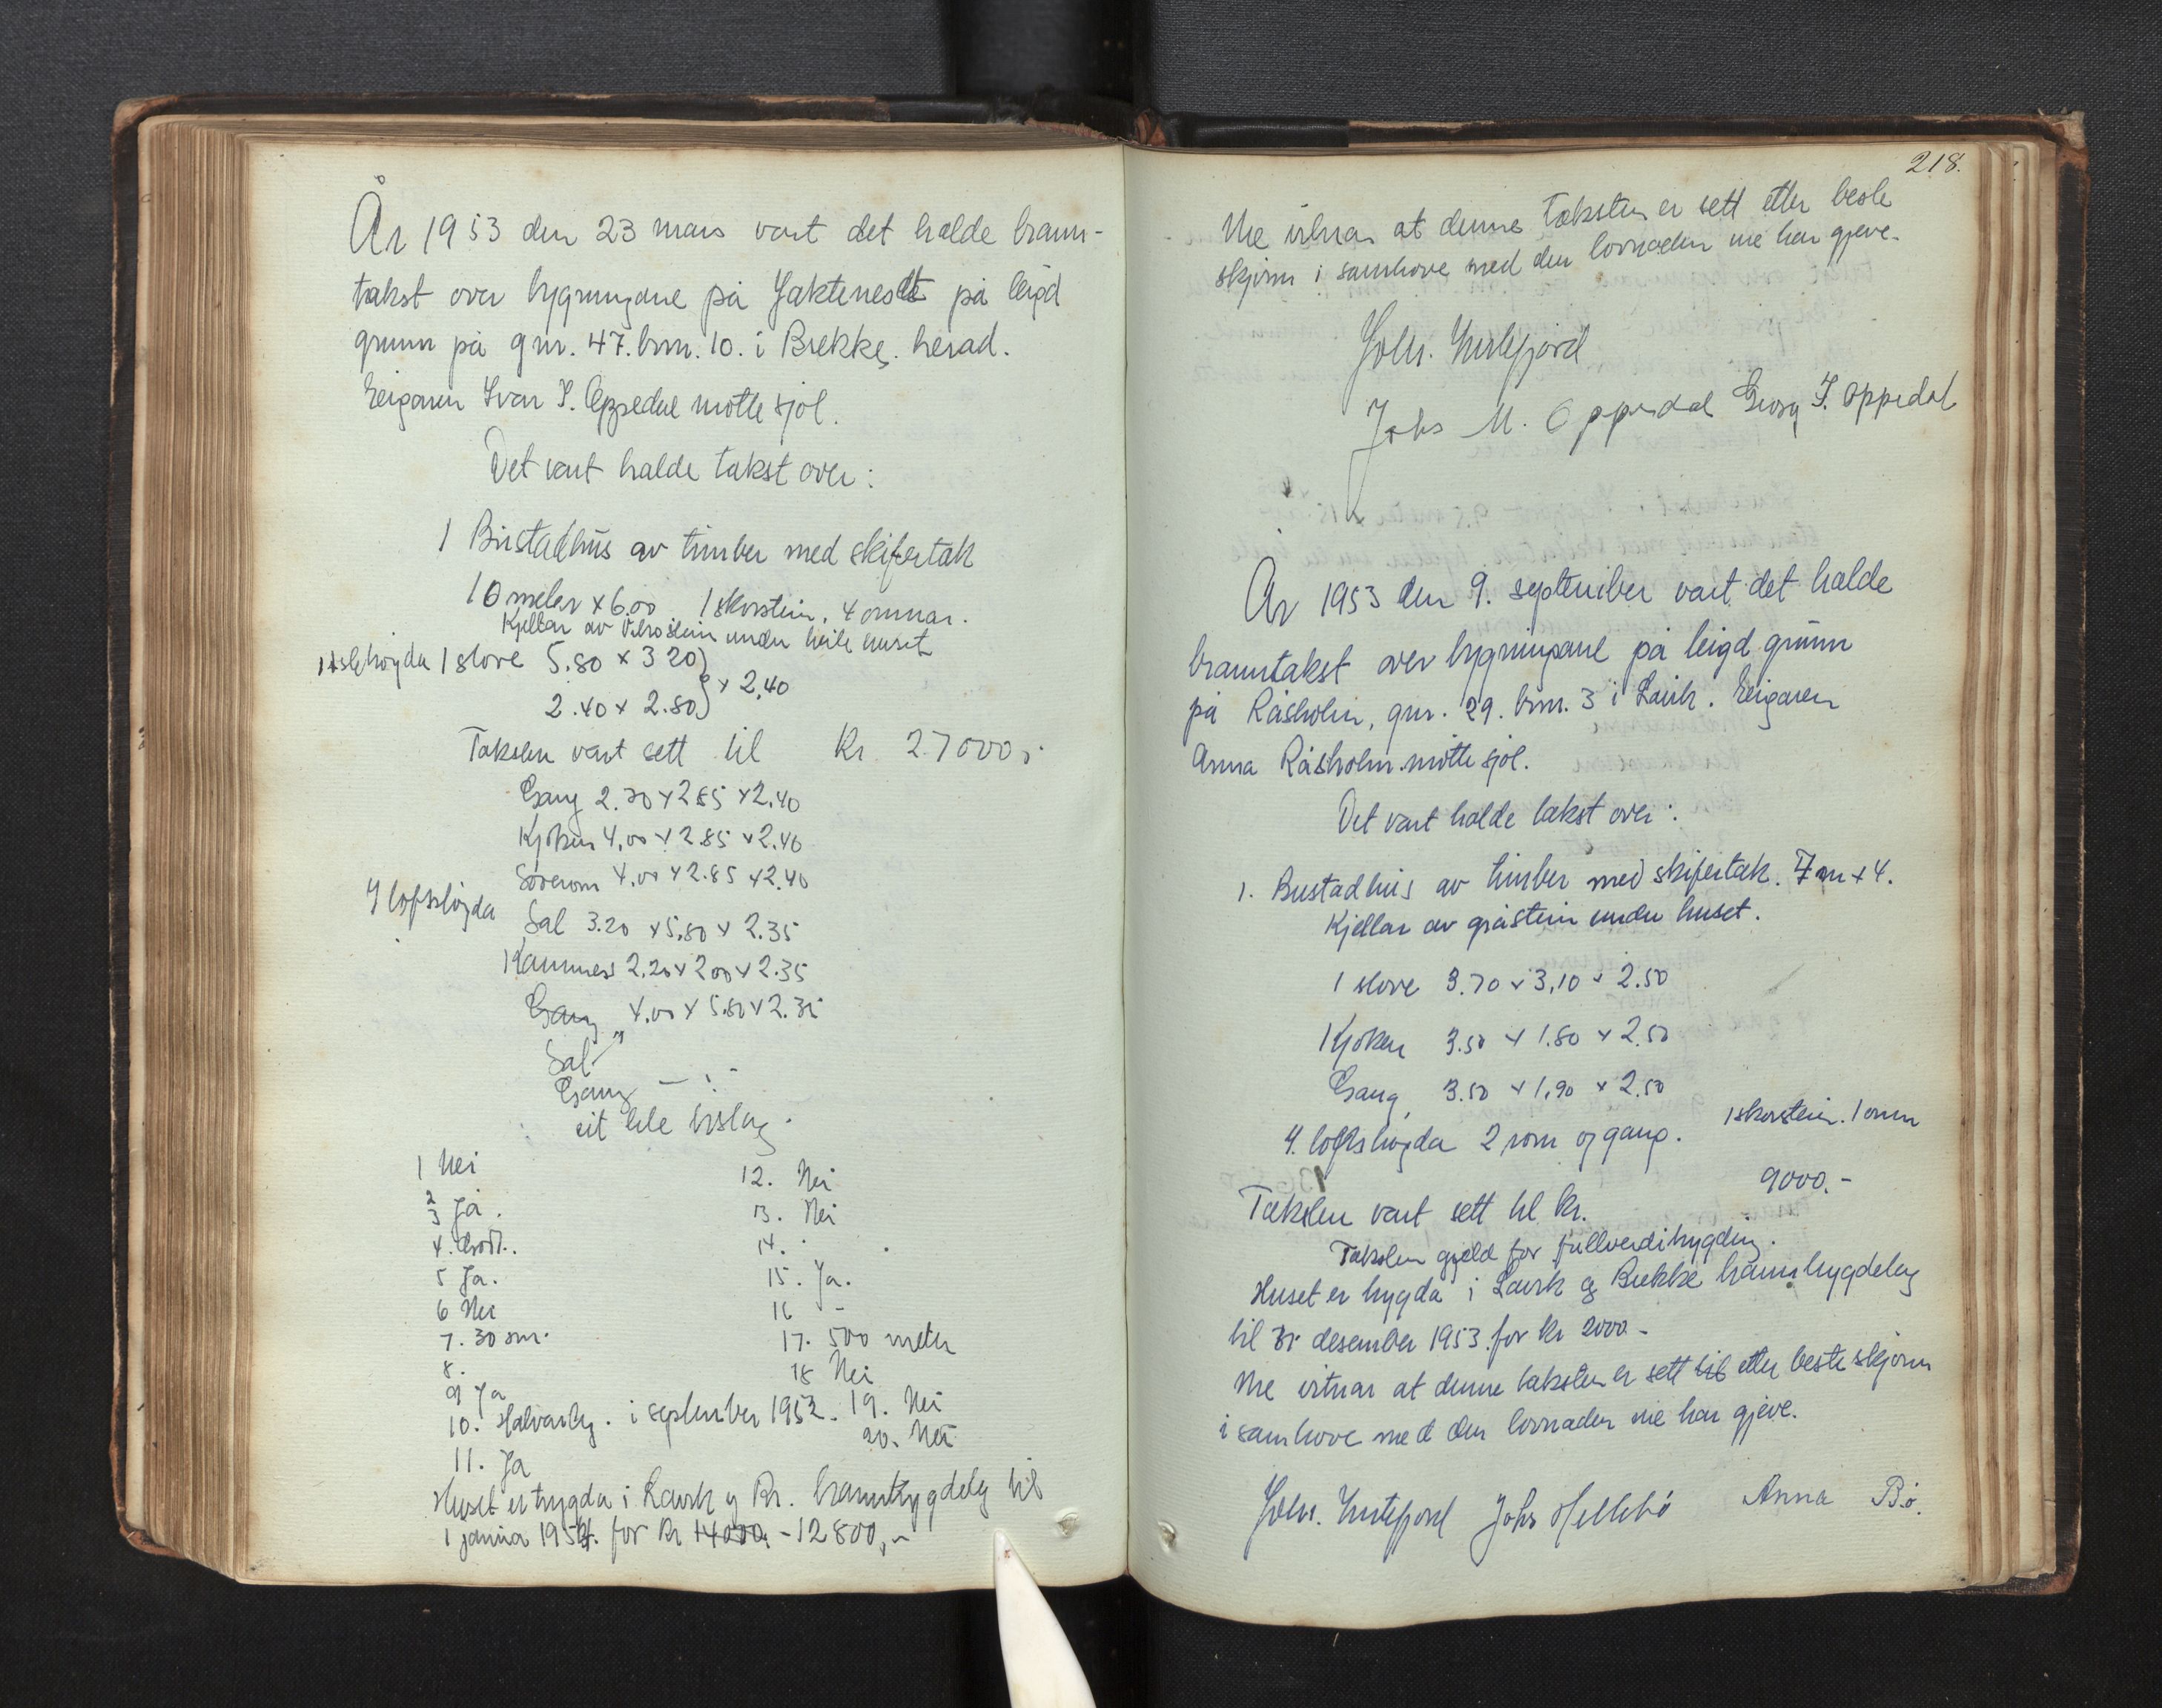 År 1953 den 23 mars vart det halde brann-
takst over bygningane på Jaktenes på leigd
grunn på gnr. 47. brn. 10. i Brekke. herad.
Eigaren Ivar I. Oppedal møtte sjøl.
Det vart halde takst over:
1 Bustadhus av timber med skifertak
10 meter x 6.00 1 skorstein, 4 omnar.
Kjellar av under heile huset
1stehøgda 1 stove 5.80 x 3 20
2.40 x 2.80 } x 2,40
Taksten vart sett til Kr 27000,-
Gang 2.70 x 2 85 x 2.40
Kjøken 4,00 x 2.85 x 2.40
Soverom 4.00 x 2.85 x 2.40
I loftshögda
Sal 3.20 x 5,80 x 2.35
Kammers 2,20 x 200 x 2.35
Gang 4.00 x 5.80 x 2.35
Sal — "
Gang — " —
eit lite bislag.
1 Nei
2
3 Ja.
4. Godt.
5 Ja.
6 Nei
7. 30 sm.
8.
9 Ja
10. i september 1952.
11. Ja
12. Nei
13. Nei
14. -
15. Ja.
16 -
17. 500 meter
18 Nei
19. Nei
20. Nei
Huset er trygda i Lavik og Br. branntrygdelag til
1 janua 1954. for Kr 14000. - 12800,-
218.
Me vitnar at denne taksten er sett etter beste
skjønn i samhøve med den lovnaden me har gjeve.
Johs M. Oppedal Georg I. Oppedal
År 1953 den 9. september vart det halde
branntakst over bygningane på leigd grunn
på Råsholm, gnr. 29. brn. 3 i Lavik. Eigaren
Anna Råsholm møtte sjøl.
Det vart halde takst over:
1. Bustadhus av timber med skifertak. 7 m x 4.
Kjellar av gråstein under huset.
1 stove 3.70 x 3,10 x 2.50
1 Kjøken 3.50 x 1.80 x 2.50
Gang 3.50 x 1,90 x 2.50
I. loftshøgda 2 rom og gang. 1 skorstein. 1 omn
Taksten vart sett til kr. 9000.-
Taksten gjeld for fullverdibygding.
Huset er trygda i Lavik og Brekke branntrygdelag
til 31 desember 1953 for kr 2000 -
Me vitnar at denne taksten er sett til etter beste skjønn
i samhøve med den lovnaden me har gjeve.
Johs Hellebø Anna Bø.